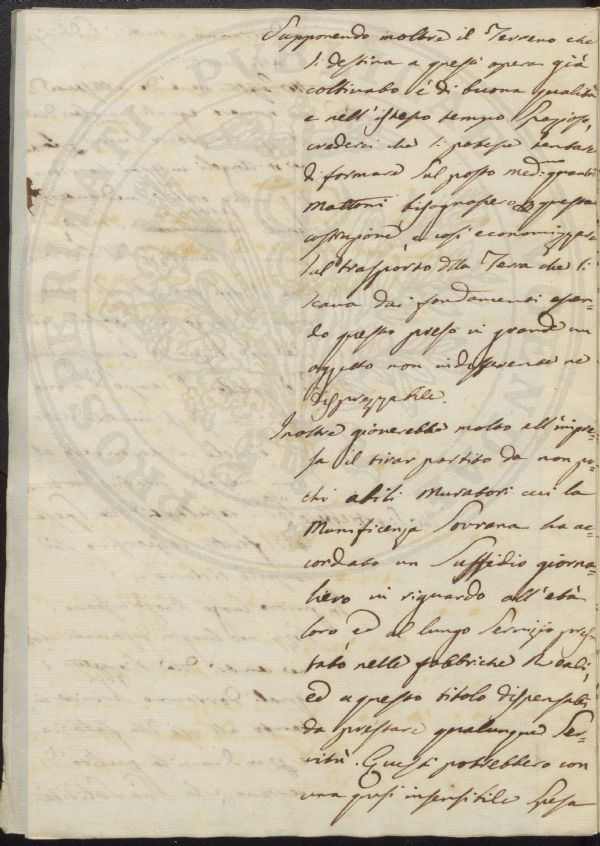 Supponendo inoltre il Terreno che
si destina a questi opera già
coltivabo è di buona qualità
e nell'istesso tempo Spazioso,
crederei che si potesse tentare
di formare sul posto med.mo quanti
Mattoni bisognassero a questa
costruzione, e così economizzare
sul trasporto d.lla Terra che si
scava dai fondamenti essen-
do questo preso in grande un
oggetto non indifferente ne
disprezzabile.
Inoltre gioverebbe molto all'impre-
sa il tirar partito da non po-
chi abili Muratori cui la
Munificenza Sovrana ha ac-
cordato un Suffidio giorna-
liero in riguardo all'età
loro ed al lungo Servizio pres-
tato nelle fabbriche Reali,
ed a questo titolo dispensabi
da prestare qualunque Ser-
vitù. Questi potrebbero con
una quasi insensibile Spesa
PROSPERITATI PUBLICAE